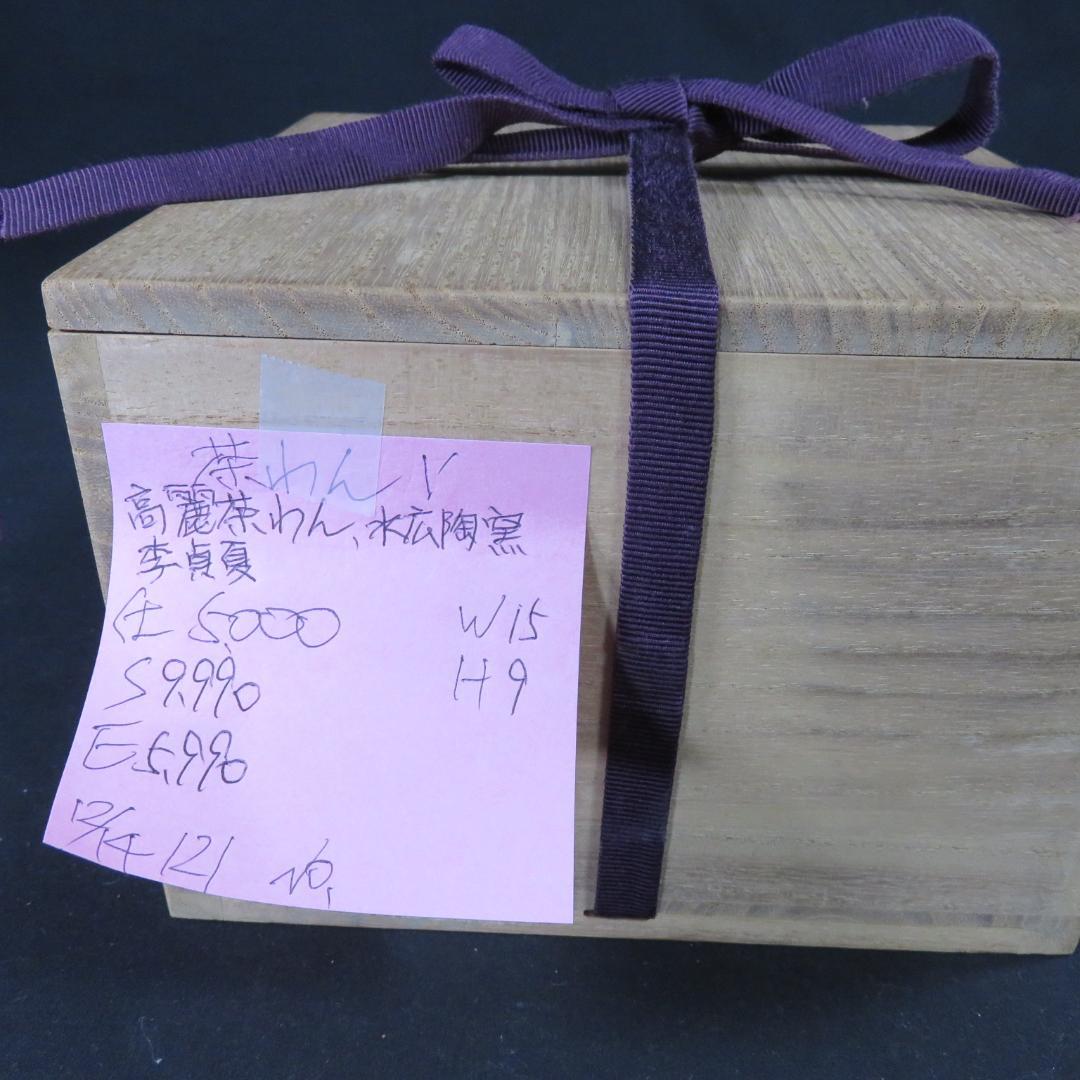 茶わん
高麗茶わん、水広陶窯
李貞夏
仕 5000 W15
S 9,990 H9
E 5,990
12/14 121